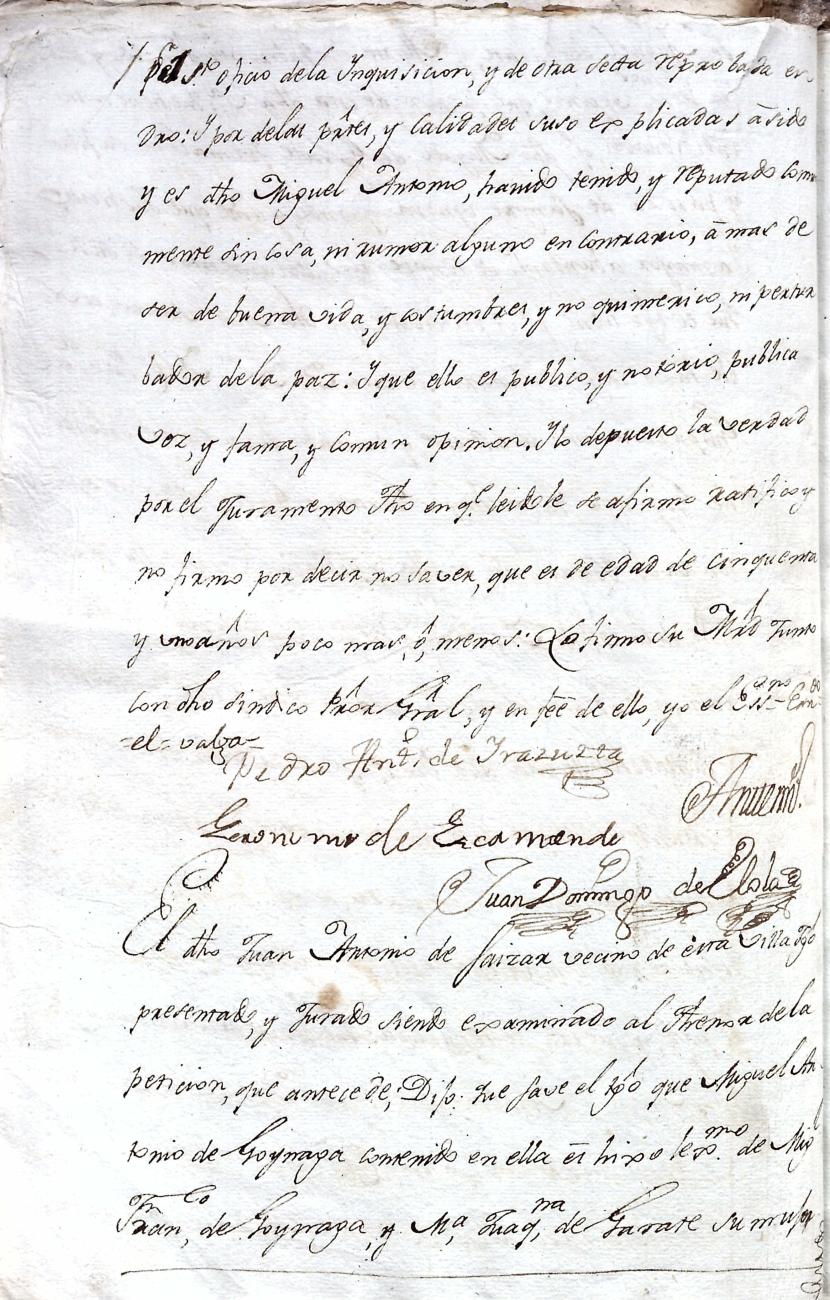 pr el S.to oficio dela Inquisicion, y de otra secta reprobada en
dro: Y por delas prtes, y Calidades suso explicadas à sido
y es dho Miguel Antonio, havido tenido, y reputado comun
mente sin cosa, ni rumor alguno en contrario, à mas de
ser de buena vida, y costumbres, y no quimerico, ni pertur
bador dela paz: Y que ello es publico, y notorio, publica
voz, y fama, y comun opinion. Y lo depuesto la verdad
por el Juramento fho en q.e leidole se afirmo ratifico y
no firmo por decir no saver, que es de edad de cinquenta
y un años poco mas, ô, menos: Lo firmo su Mrd Junto
con dho sindico Pror Gral, y en fee de ello, yo el Ess.no
=el= valga=
Pedro Ant.o de Irazuzta
Antemi
Geronimo de Ezcamendi
Juan Domingo de Elola
El dho Juan Antonio de Saizar vecino de esta Villa tgo
presentado, y Jurado siendo examinado al thenor dela
peticion, que antecede, Dijo: Que save el tgo que Miguel An
tonio de Goynaga contenido en ella es hixo lex.mo de Mig
Fran.co de Goynaga, y M.a Juaq.na de Garate su muger